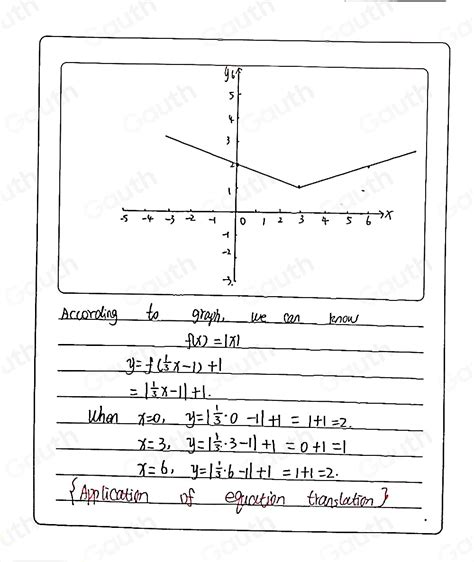 y
6
5
4
3
2
1
-5 -4 -3 -2 -1 0 1 2 3 4 5 6 x
-1
-2
-3
According to graph, we can know
f(x) = |x|
y = f(⅓x-1) + 1
= |⅓x-1| + 1.
When x=0, y=|⅓·0 -1|+1 = 1+1=2.
x=3, y=|⅓·3-1|+1 = 0+1=1
x=6, y=|⅓·6-1|+1 = 1+1=2.
{Application of equation translation}
Gauth